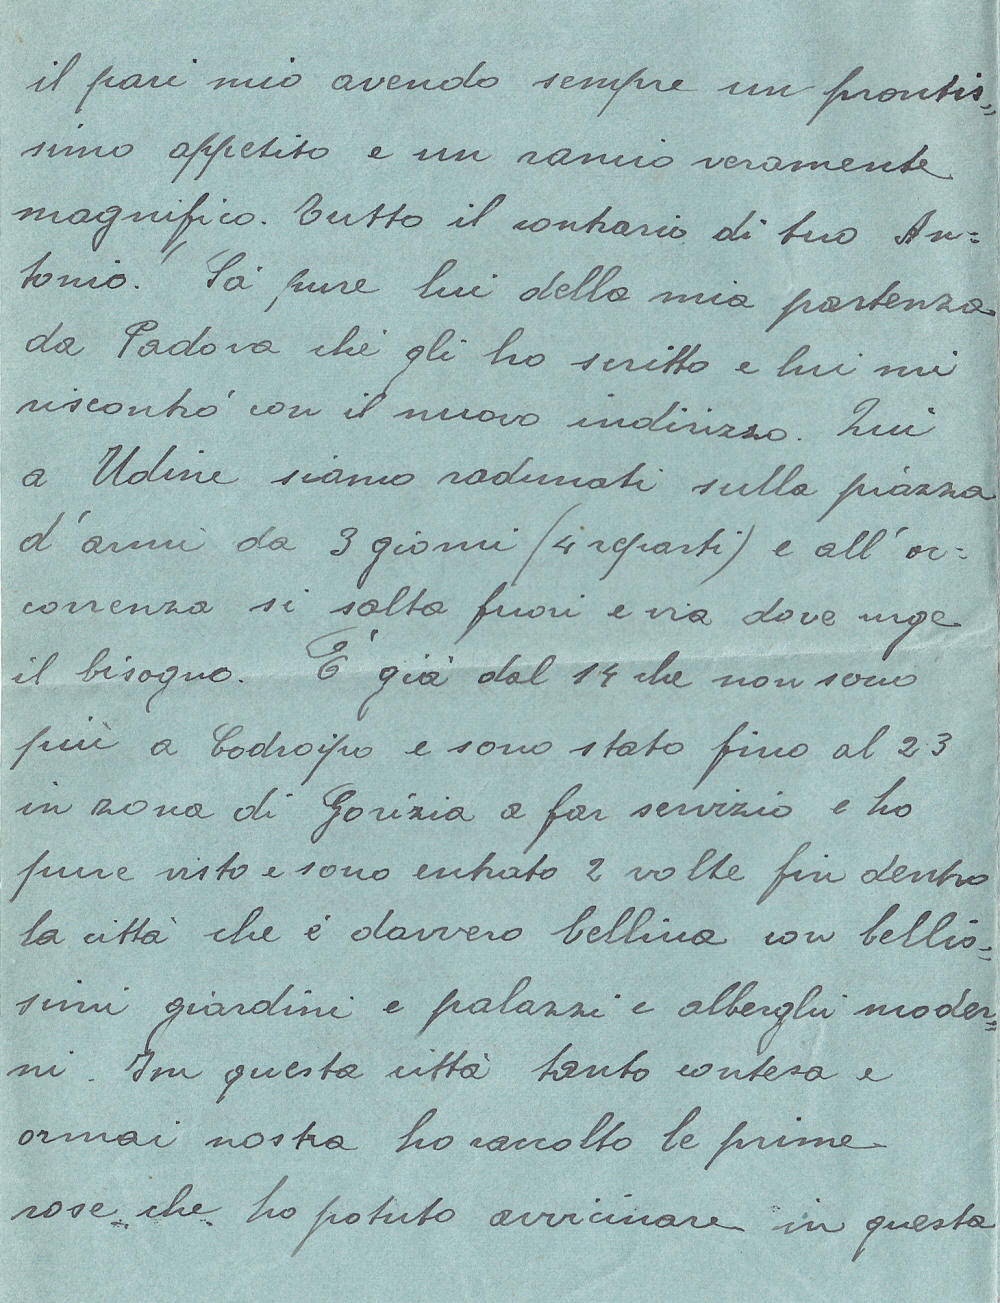 il pari mio avendo sempre un prontis„
simo appetito e un rancio veramente
magnifico. Tutto il contrario di tuo An=
tonio. Sà pure lui della mia partenza
da Padova chè gli ho scritto e lui mi
riscontró con il nuovo indirizzo. Qui
a Udine siamo radunati sulla piazza
d'armi da 3 giorni (4 reparti) e all'oc=
correnza si salta fuori e via dove urge
il bisogno. É già dal 14 che non sono
più a Codroipo e sono stato fino al 23
in zona di Gorizia a far servizio e ho
pure visto e sono entrato 2 volte fin dentro
la città che é davvero bellina con bellis„
simi giardini e palazzi e alberghi moder„
ni. In questa città tanto contesa e
ormai nostra ho raccolto le prime
rose che ho potuto avvicinare in questa